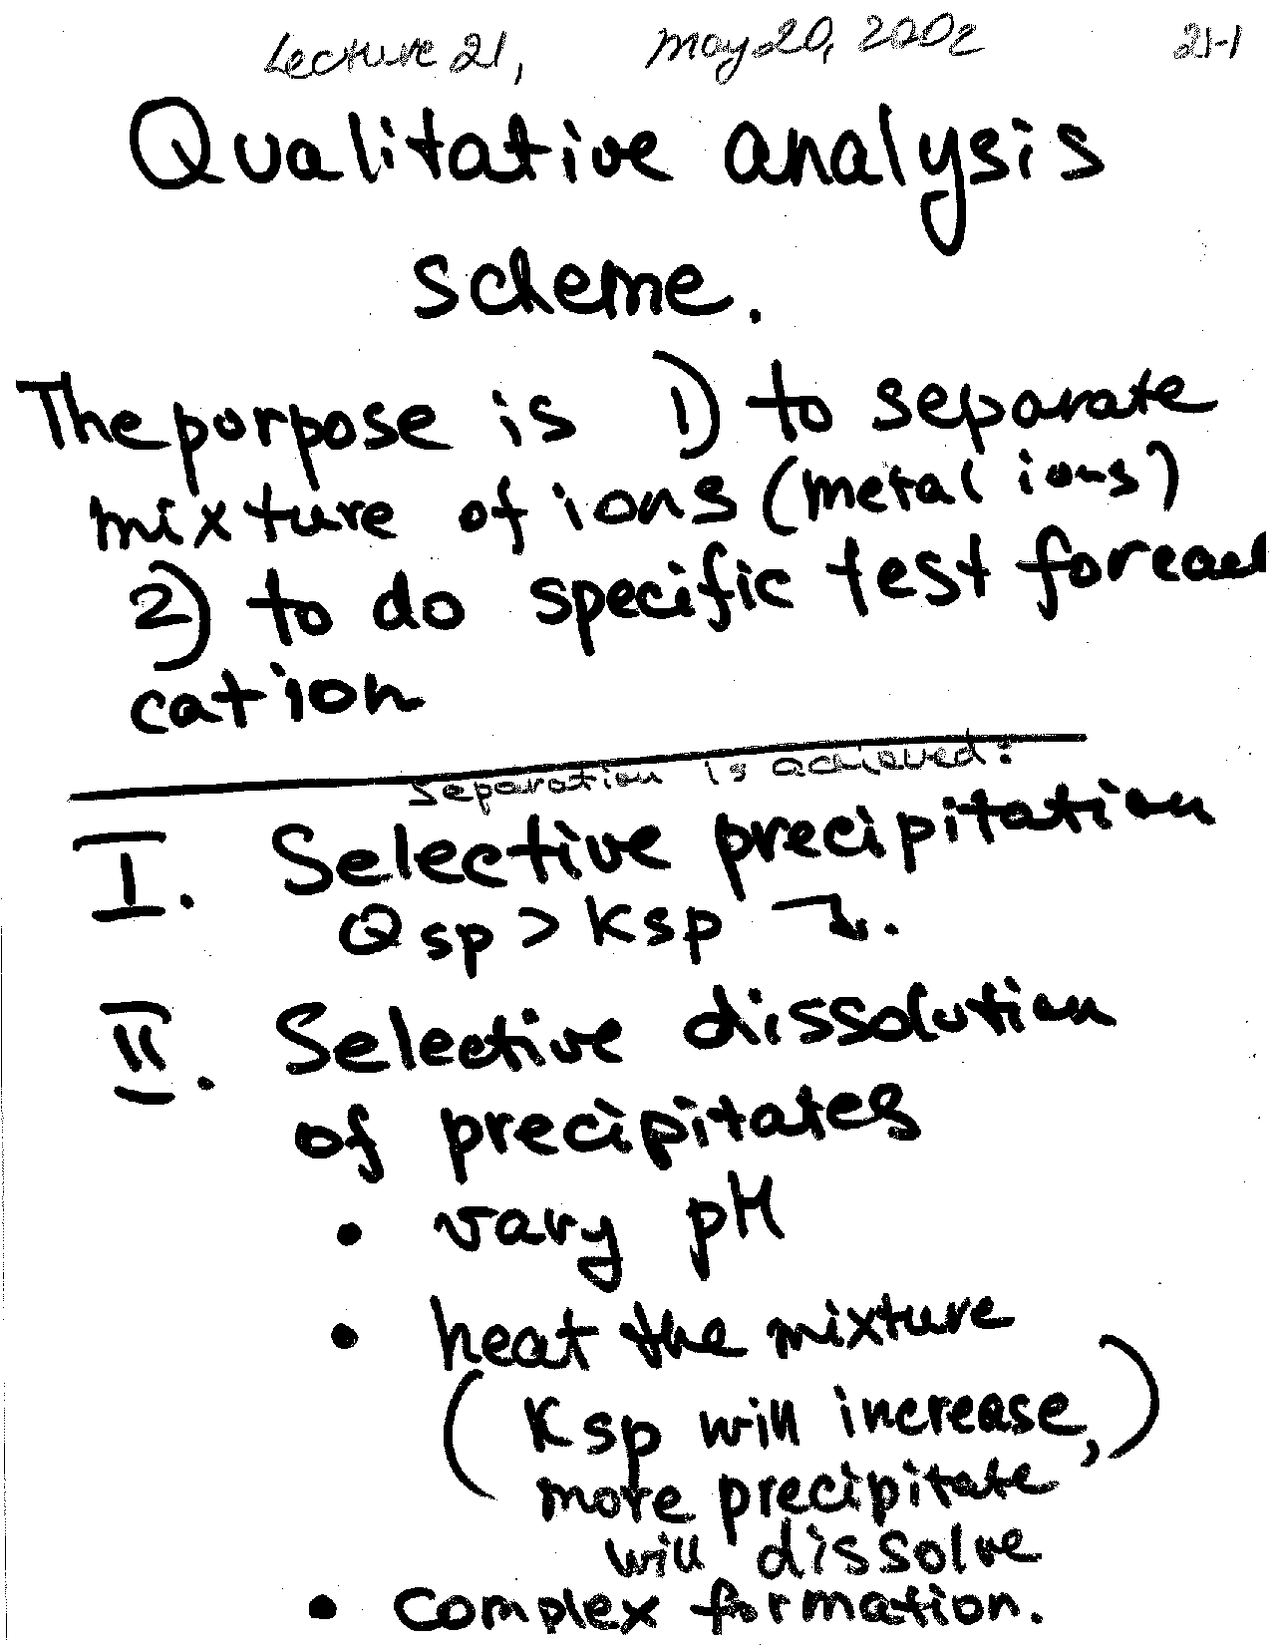 Lecture 21, May 20, 2002 21-1
Qualitative analysis
scheme.
The purpose is 1) to separate
mixture of ions (metal ions)
2) to do specific test for each
cation
Separation is achieved:
I. Selective precipitation
Qsp > Ksp ↓.
II. Selective dissolution
of precipitates
• vary pH
• heat the mixture
(Ksp will increase,)
more precipitate
will dissolve
• complex formation.